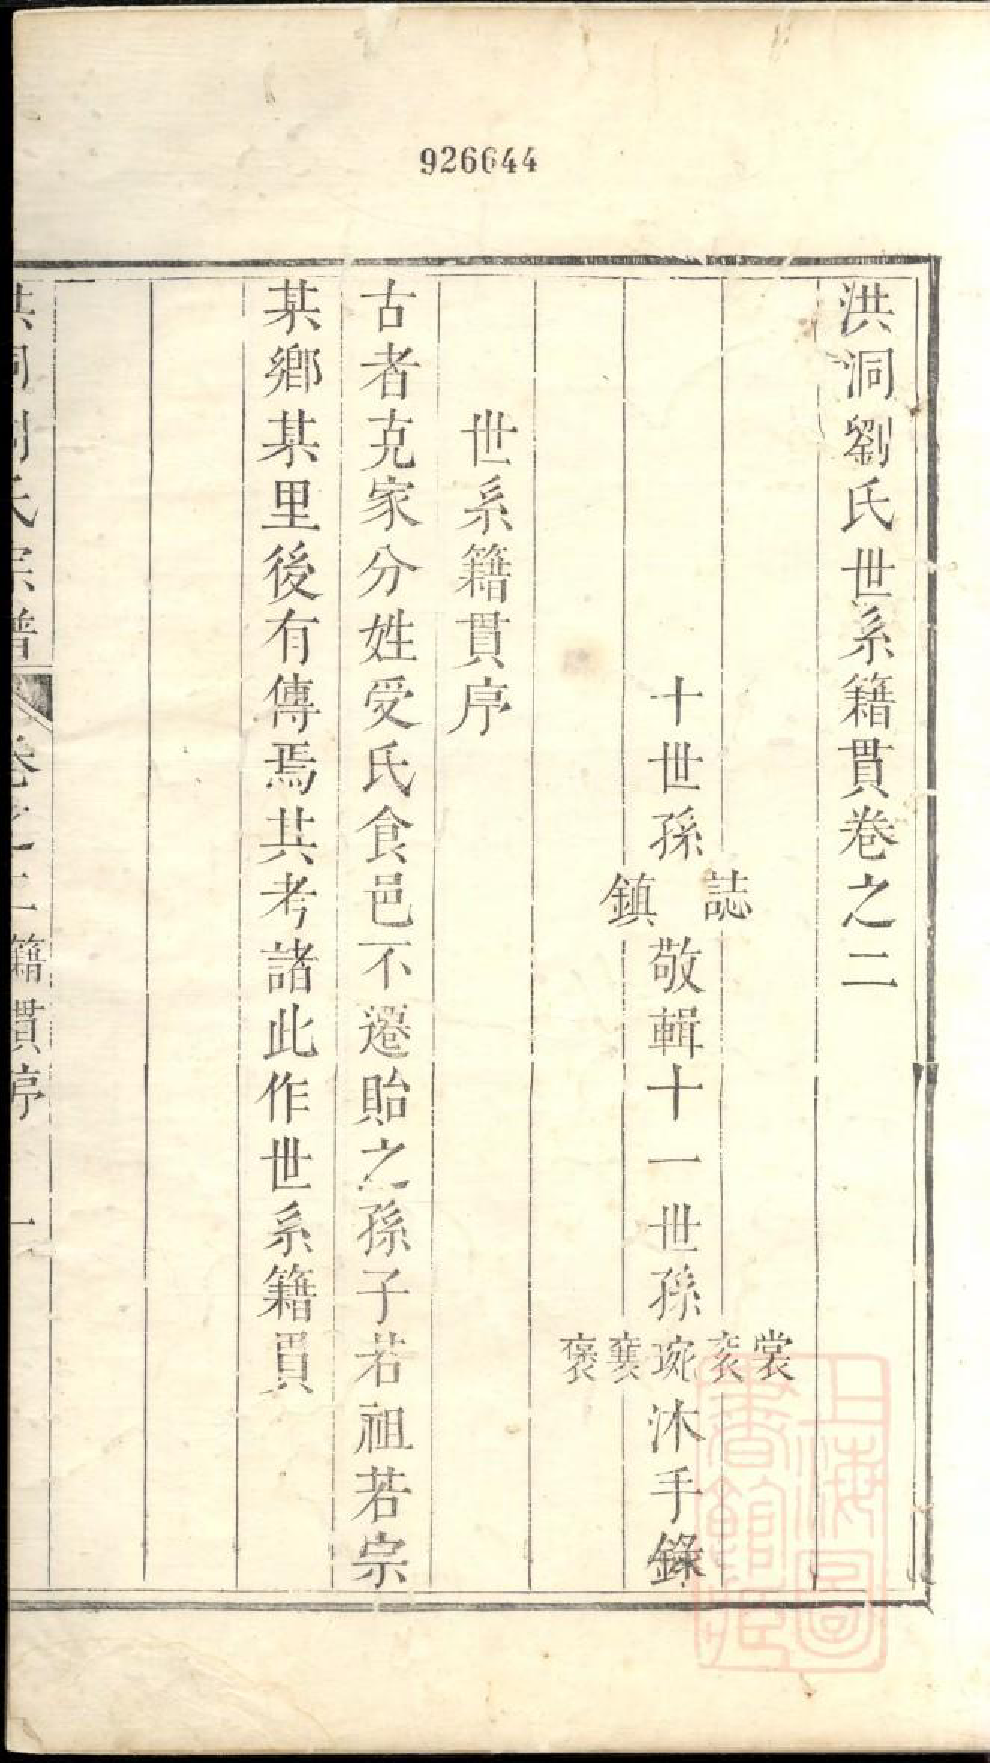 926644
洪洞劉氏世系籍貫卷之二
十世孫誌鎮敬輯十一世孫裳袤琬襄褒沐手錄
世系籍貫序
古者克家分姓受氏食邑不遷貽之孫子若祖若宗
某鄉某里後有傳焉共考諸此作世系籍貫
洪洞劉氏宗譜 卷之二籍貫序 一
上海圖書館藏